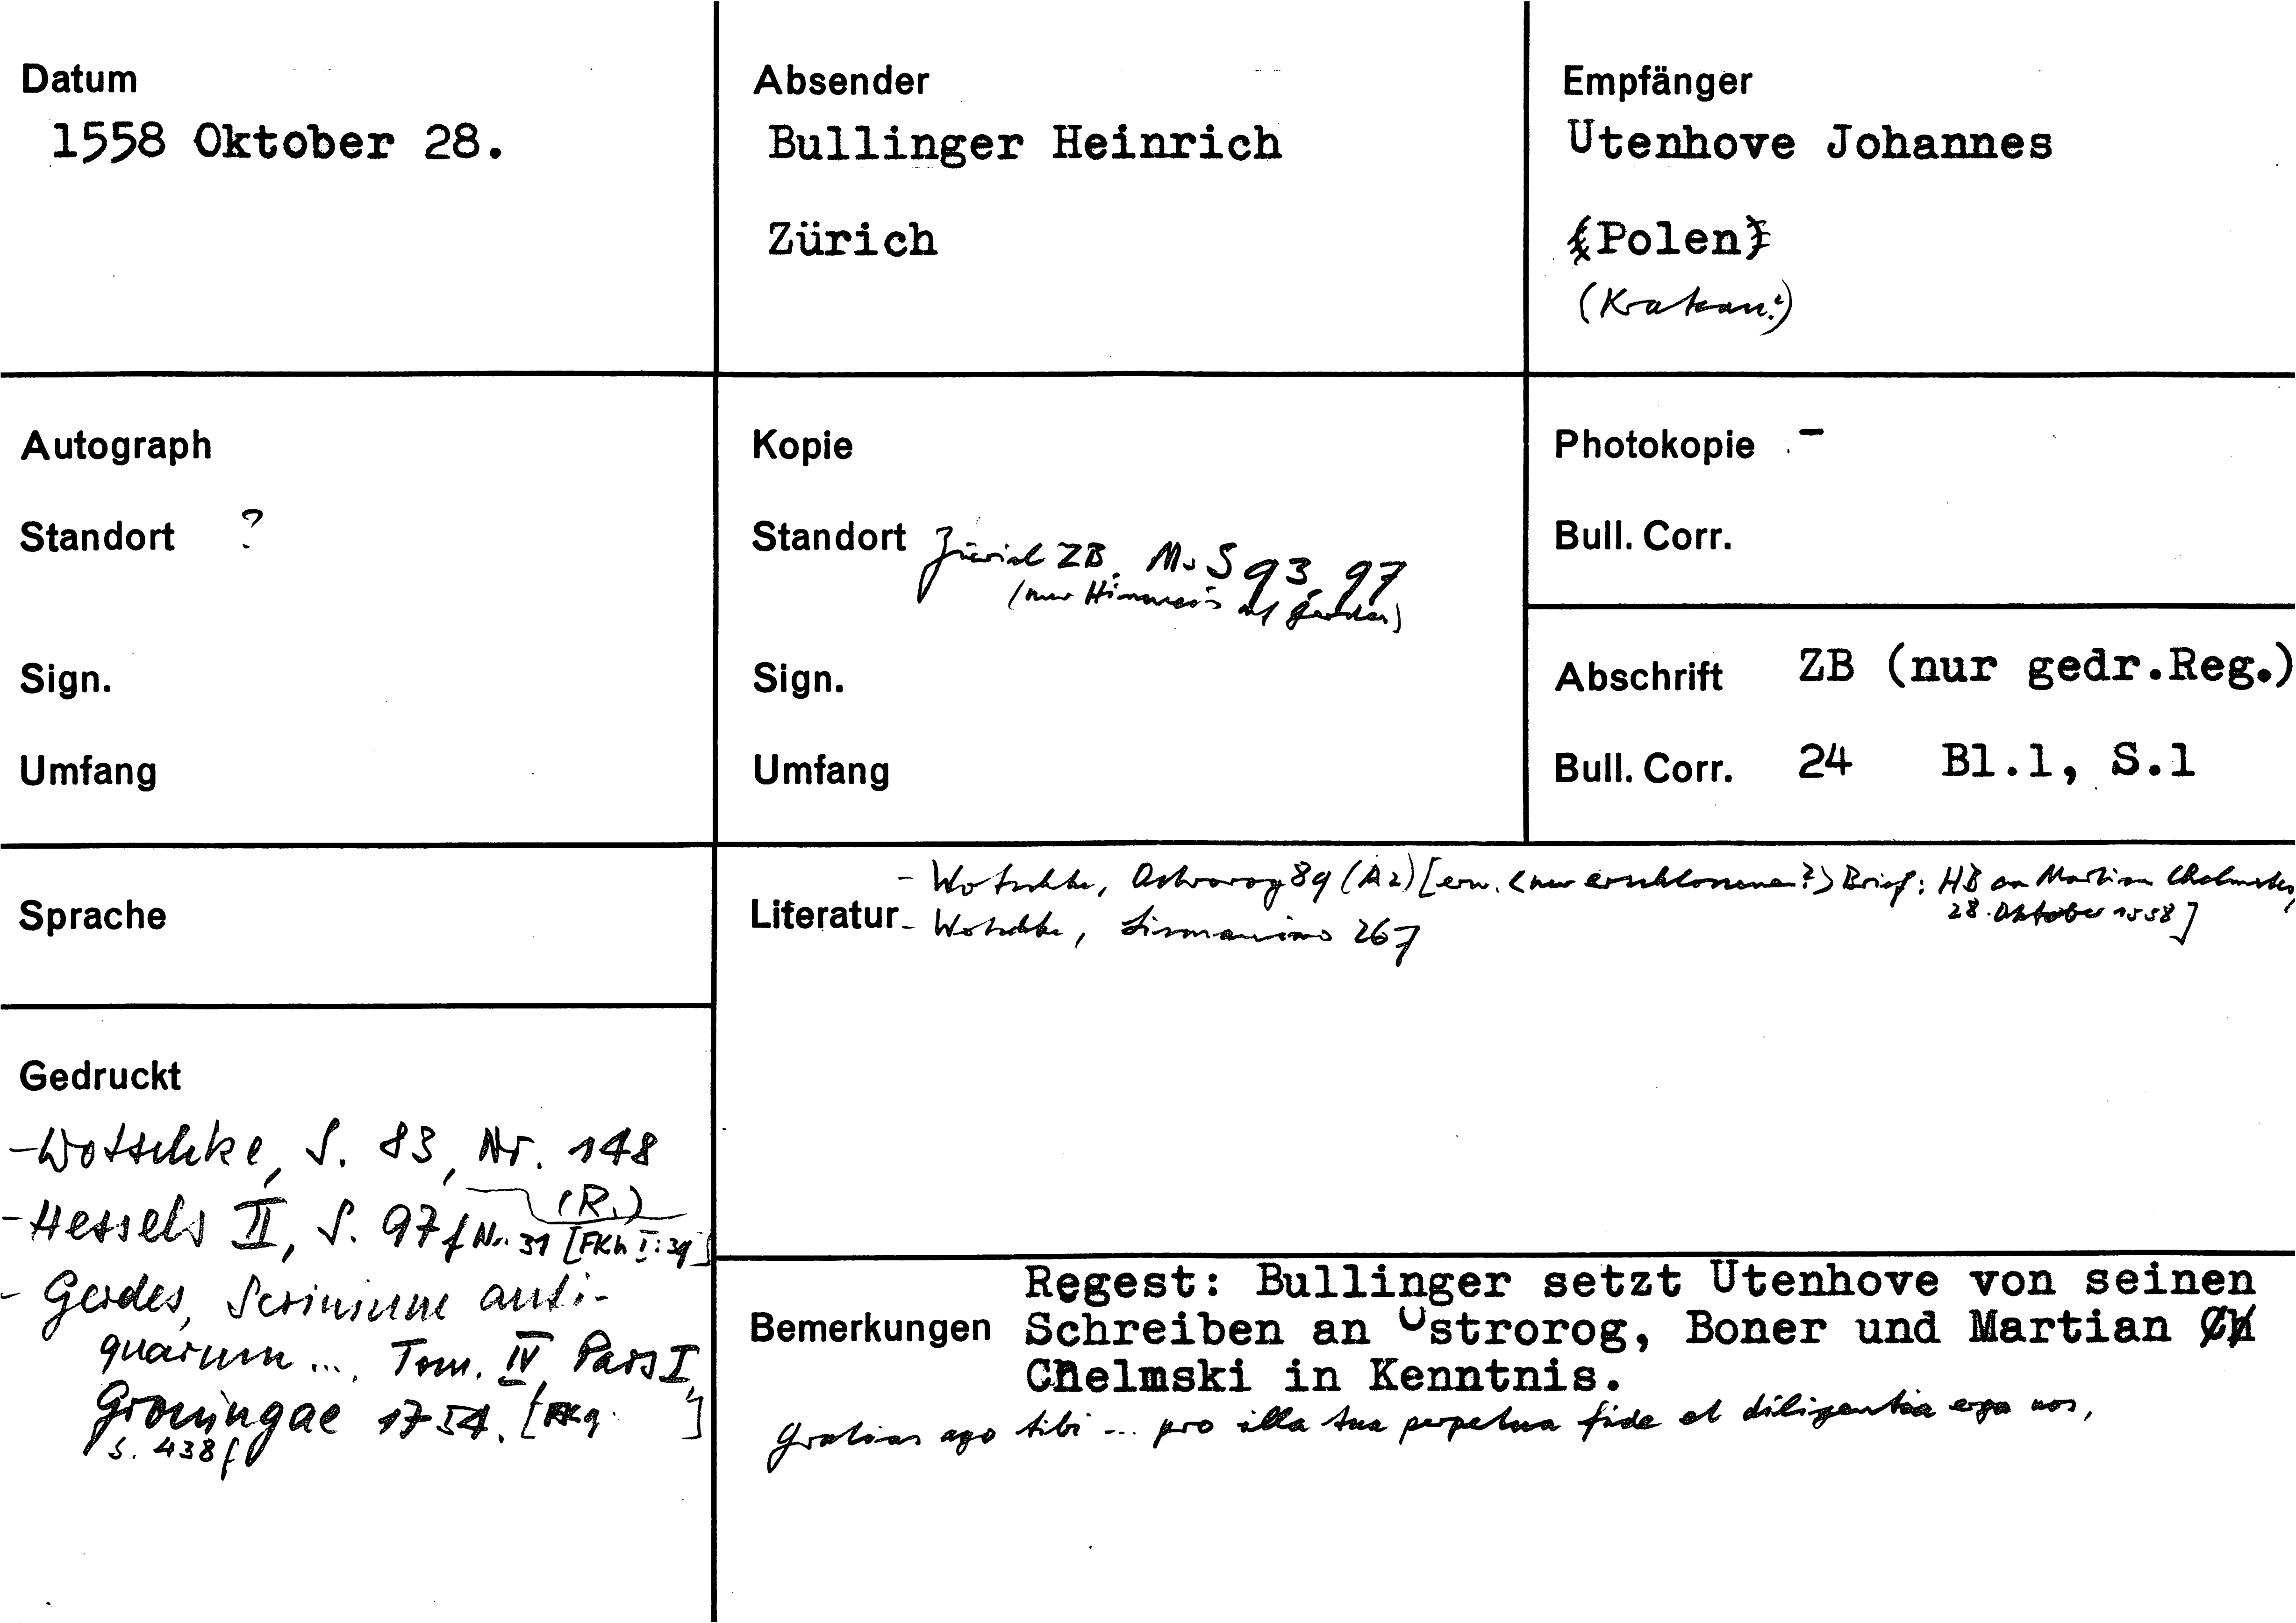 Datum
1558 Oktober 28.
Absender
Bullinger Heinrich
Zürich
Empfänger
Utenhove Johannes
(Polen)
(Krakau?)
Autograph
Standort ?
Sign.
Umfang
Kopie
Standort Zürich ZB, Ms S 93, 97
(nur Hinweis auf Gerdes)
Sign.
Umfang
Photokopie -
Bull. Corr.
Abschrift ZB (nur gedr.Reg.)
Bull. Corr. 24 Bl.1, S.1
Sprache
Literatur
- Wotschke, Ostrorog 89 (A2) [erw. <nur erschlossener?> Brief: HB an Martian Chelmski,
28. Oktober 1558]
- Wotschke, Lismanino 267
Gedruckt
- Wotschke, S. 83, Nr. 148
(R.)
- Hessels II, S. 97f Nr. 31 [FKh I:39]
- Gerdes, Scrinium anti-
quarum ..., Tom. IV, Pars I,
Groningae 1754. [FKg ]
S. 438f
Bemerkungen
Regest: Bullinger setzt Utenhove von seinen
Schreiben an Ostrorog, Boner und Martian
Chelmski in Kenntnis.
Gratias ago tibi ... pro illa tua perpetua fide et diligentia erga nos,